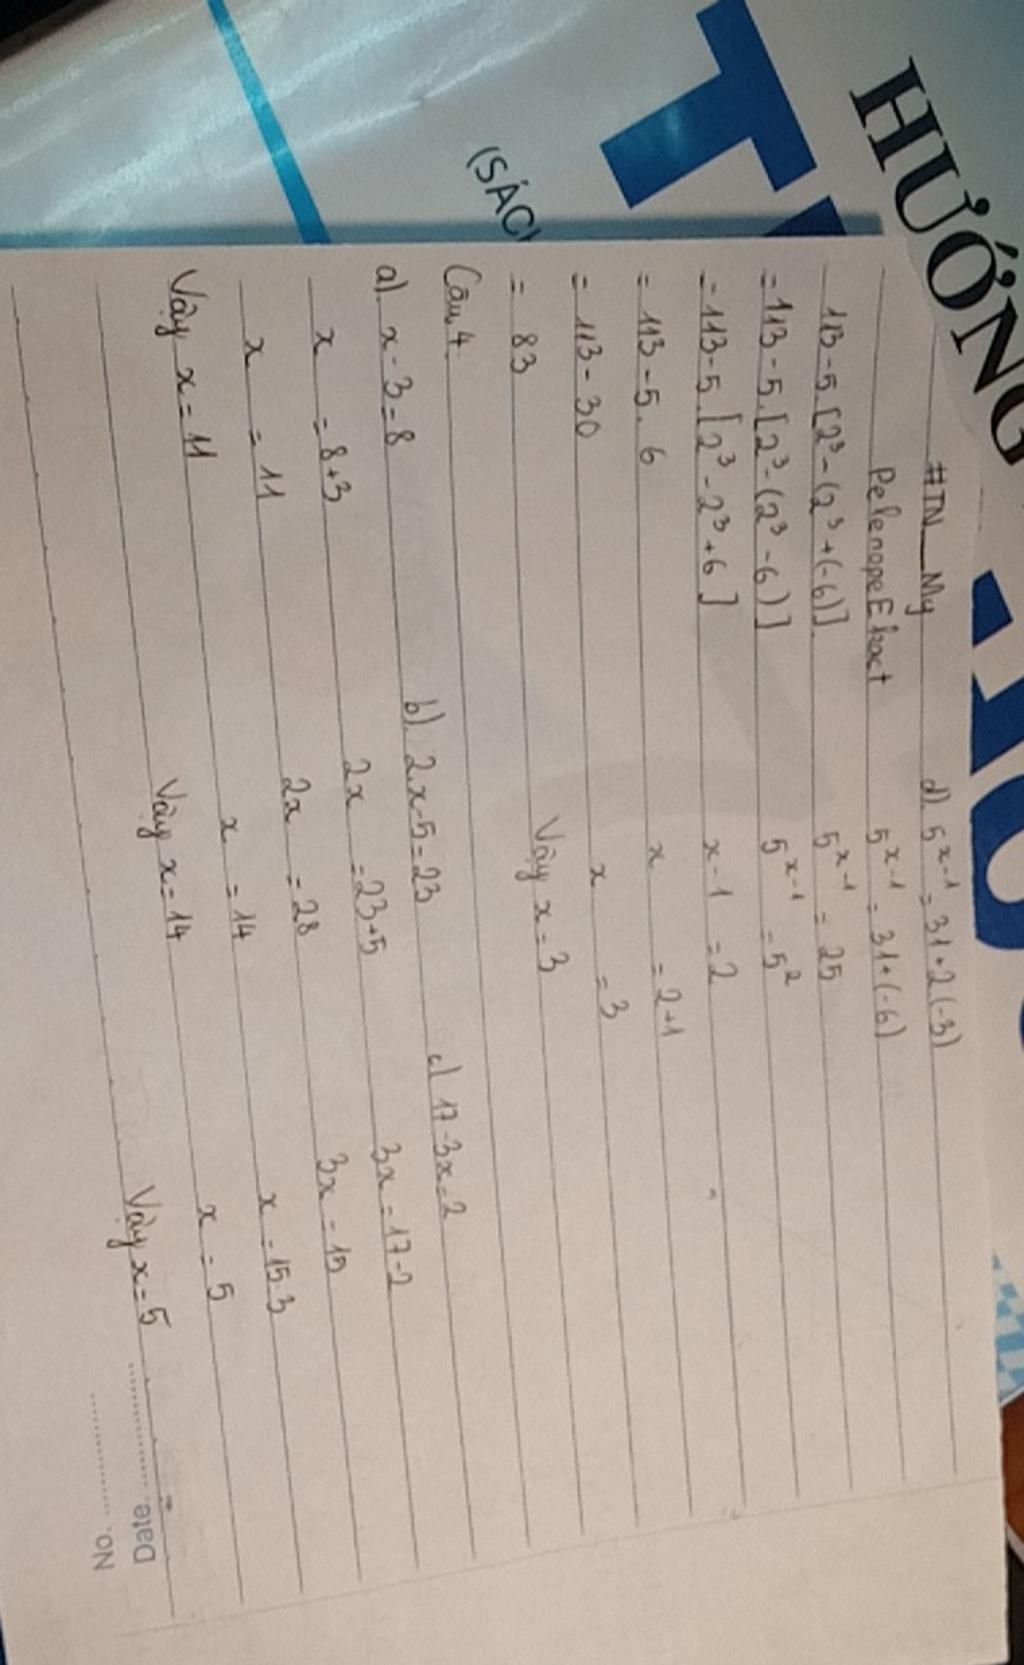 HƯỚNG
(SÁCH
#TN_My
PelenopeEkact
113-5.[2³-(2³+(-6)]
=113-5.[2³-(2³-6)]
=113-5.[2³-2³+6]
=113-5.6
=113-30
= 83
d). 5ˣ⁻¹ = 31+2(-3)
5ˣ⁻¹ = 31+(-6)
5ˣ⁻¹ = 25
5ˣ⁻¹ = 5²
x-1 = 2
x = 2+1
x = 3
Vậy x=3
Câu 4
a). x-3=8
x = 8+3
x = 11
Vậy x=11
b). 2.x-5=23
2x = 23+5
2x = 28
x = 14
Vậy x=14
c) 17-3x=2
3x=17-2
3x=15
x=15:3
x = 5
Vậy x=5
Date
No.